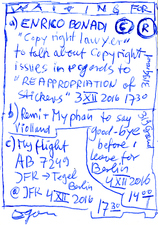 WAITING FOR
a) ENRICO BONADI © ®
"Copyright lawyer"
to talk about Copyright
issues in regards to
"REAPPROPRIATION OF
STICKERS" 3 XII 2016 1730
b) Romi + My phan to say
Violland good-bye
before I
leave for
Berlin
4 XII 2016
1400
c) My flight
AB 7249
JFK → Tegel
Berlin
@ JFK 4 XII 2016
1730